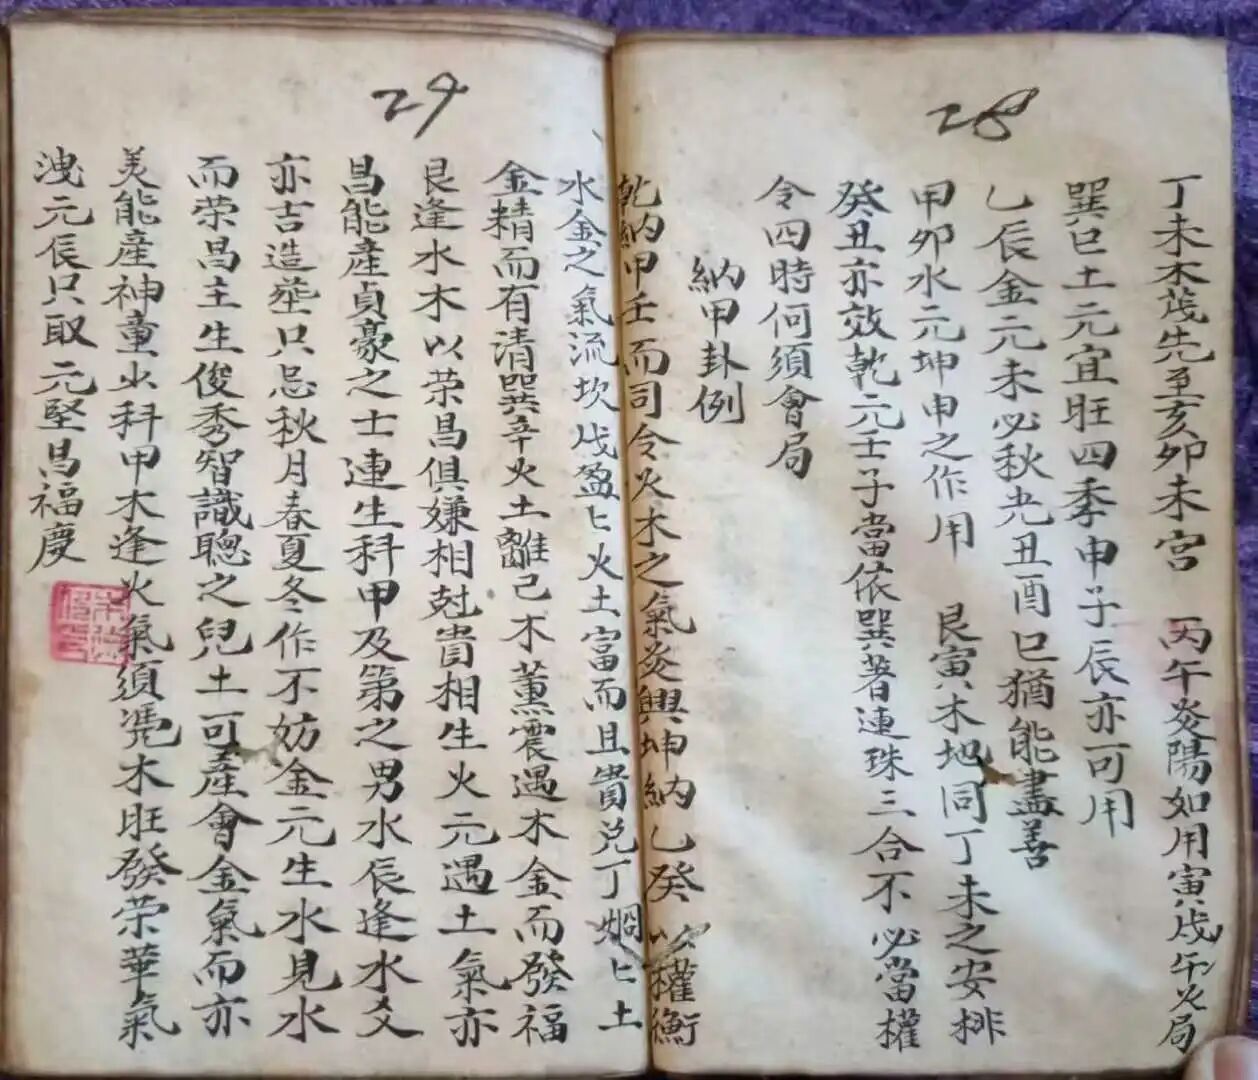 28
丁未木茂先至亥卯未宮　丙午炎陽如用寅戌午火局
巽巳土元宜旺四季申子辰亦可用
乙辰金元未必秋光丑酉巳猶能盡善
甲卯水元坤申之作用　艮寅木地同丁未之安排
癸丑亦效乾元壬子當依巽著連珠三合不必當權
令四時何須會局
納甲卦例
乾納甲壬而司令火木之氣炎興坤納乙癸以權衡
29
水金之氣流坎戊盈匕火土富而且貴兌丁烱匕土
金精而有清巽辛火土離己木薫震遇木金而發福
艮逢水木以荣昌俱嫌相尅貴相生火元遇土氣亦
昌能產貞豪之士連生科甲及第之男水辰逢水爻
亦吉造塟只忌秋月春夏冬作不妨金元生水見水
而荣昌主生俊秀智識聰之兒土可產會金氣而亦
美能產神童火科甲木逢火氣須凴木旺發荣華氣
洩元辰只取元堅昌福慶